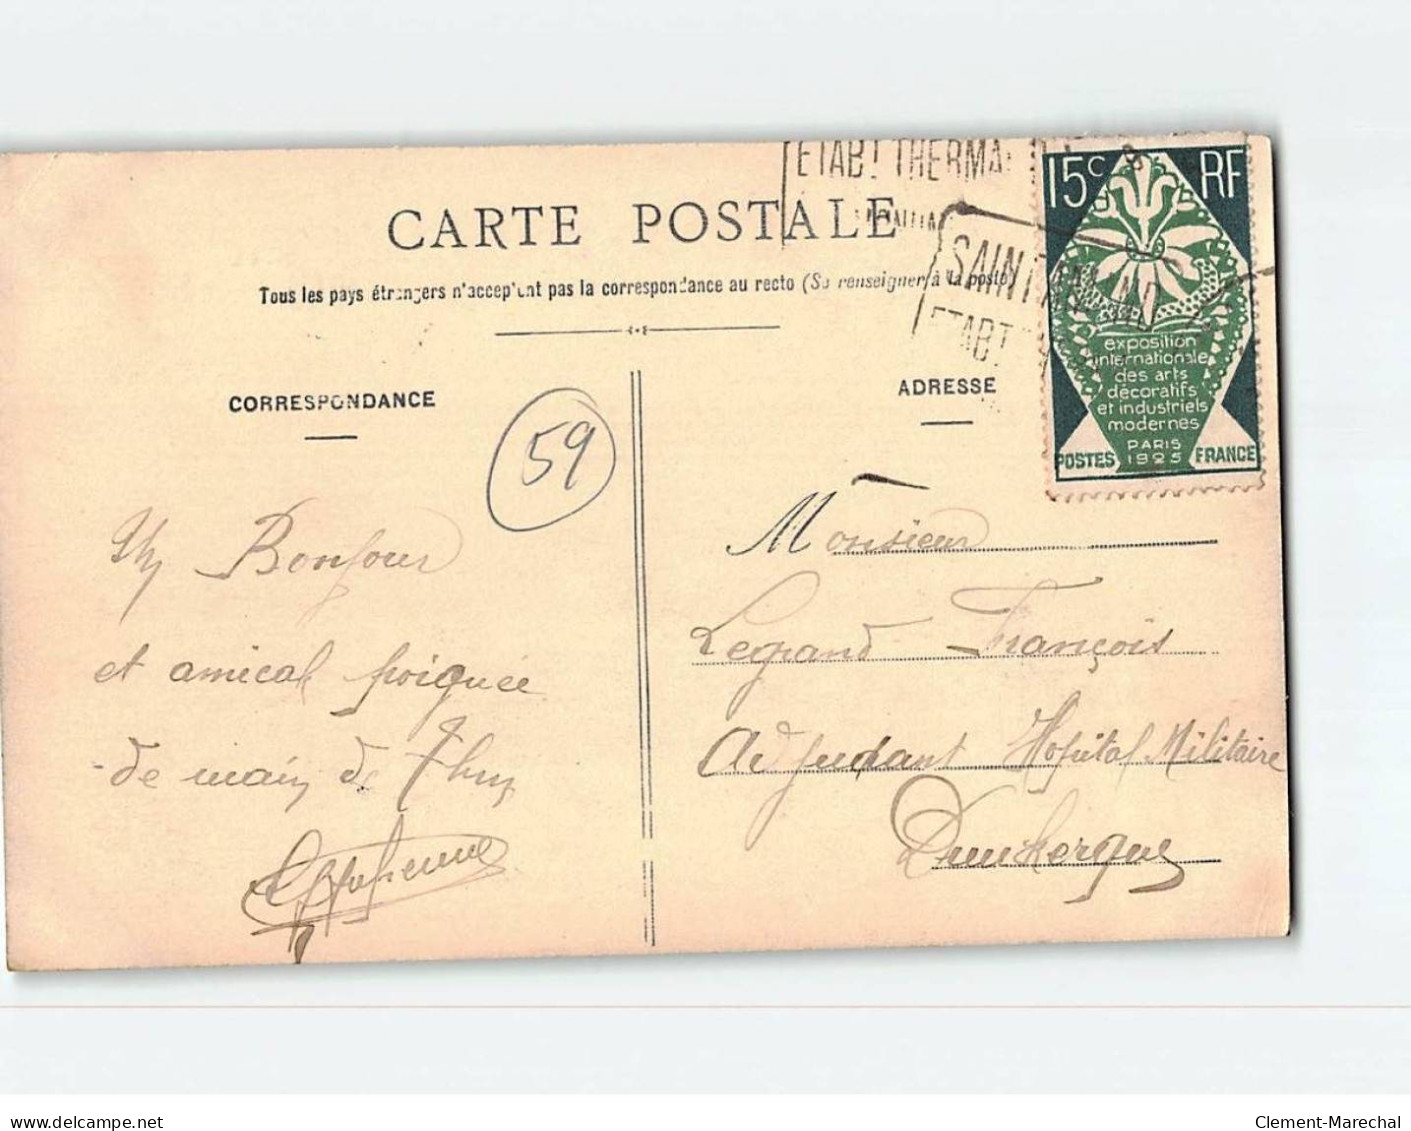 ETABT THERMA
CARTE POSTALE
SAINT AMAND
ETABT
Tous les pays étrangers n'acceptent pas la correspondance au recto (Se renseigner à la poste)
15c RF
exposition
internationale
des arts
décoratifs
et industriels
modernes
PARIS
1925
POSTES FRANCE
CORRESPONDANCE
59
Bonjour
et amical poignée
de main de
ADRESSE
Monsieur
Legrand François
Adjudant Hopital Militaire
Dunkerque
delcampe.net
Clement-Marechal